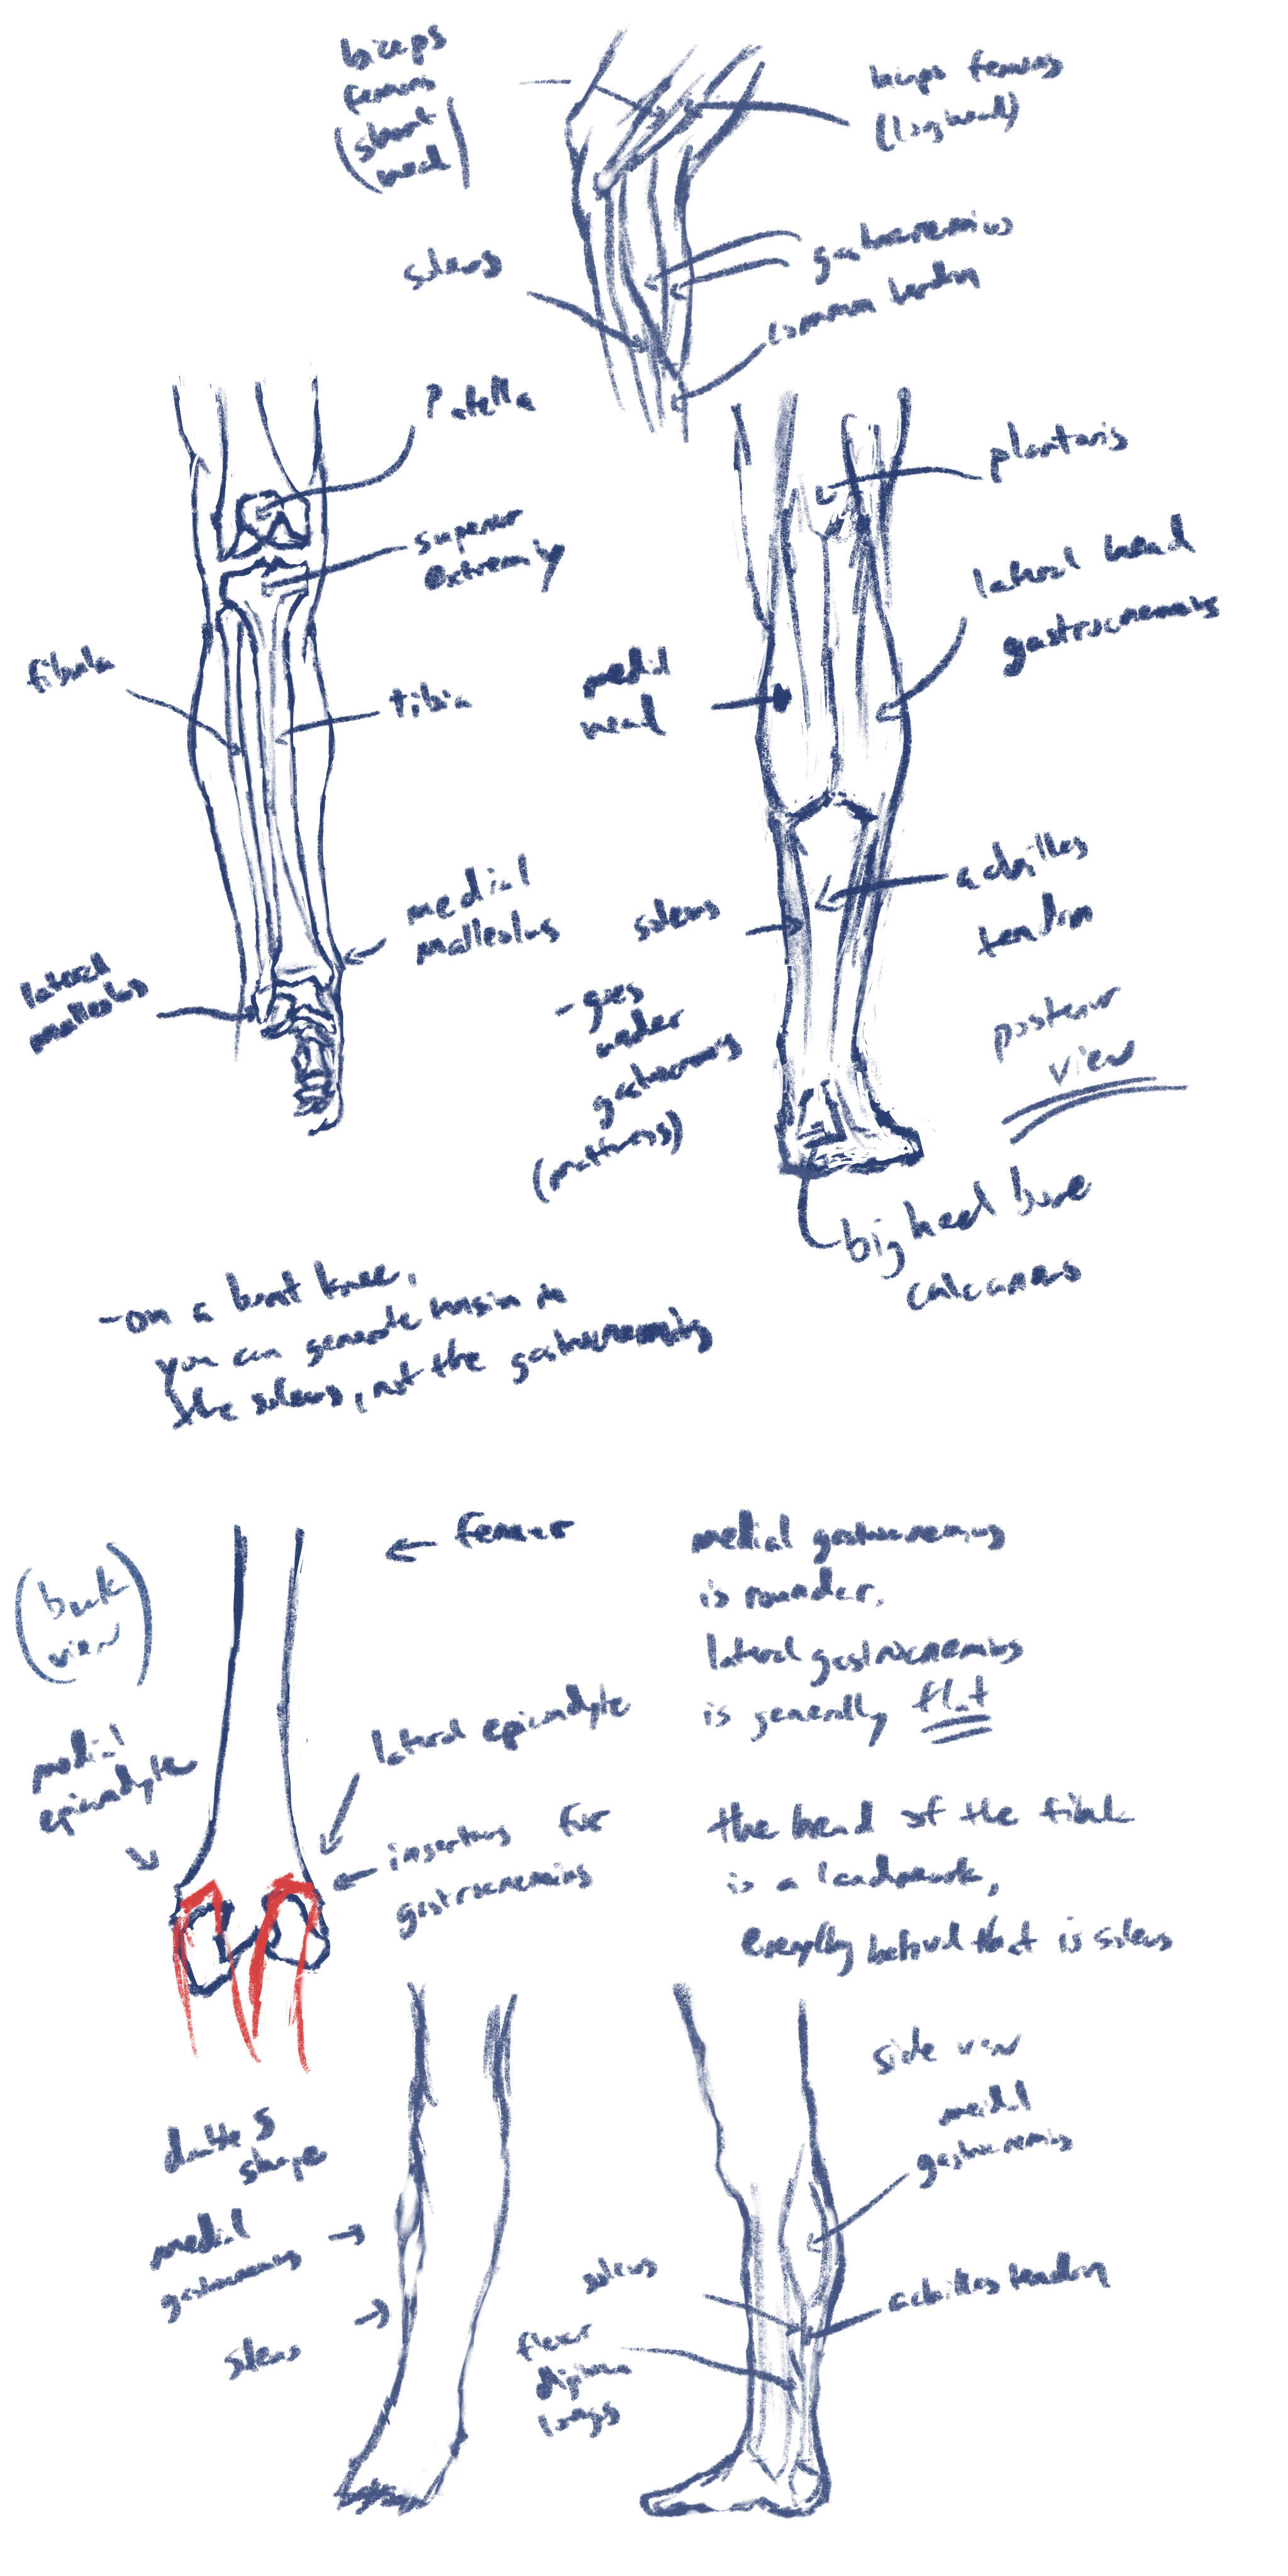 biceps
femoris
(short
head)
biceps femoris
(long head)
soleus
gastrocnemius
common tendon
Patella
superior
extremity
fibula
tibia
medial
malleolus
lateral
malleolus
plantaris
lateral head
gastrocnemius
medial
head
achilles
tendon
soleus
- goes
under
gastrocnemius
(mattress)
posterior
view
big heel bone
calcaneus
- on a bent knee,
you can generate tension in
the soleus, not the gastrocnemius
(back
view)
← femur
medial
epicondyle
lateral epicondyle
← insertions for
gastrocnemius
medial gastrocnemius
is rounder.
lateral gastrocnemius
is generally flat
the head of the fibula
is a landmark,
everything behind that is soleus
double S
shape
medial
gastrocnemius
soleus
side view
medial
gastrocnemius
soleus
achilles tendon
flexor
longus